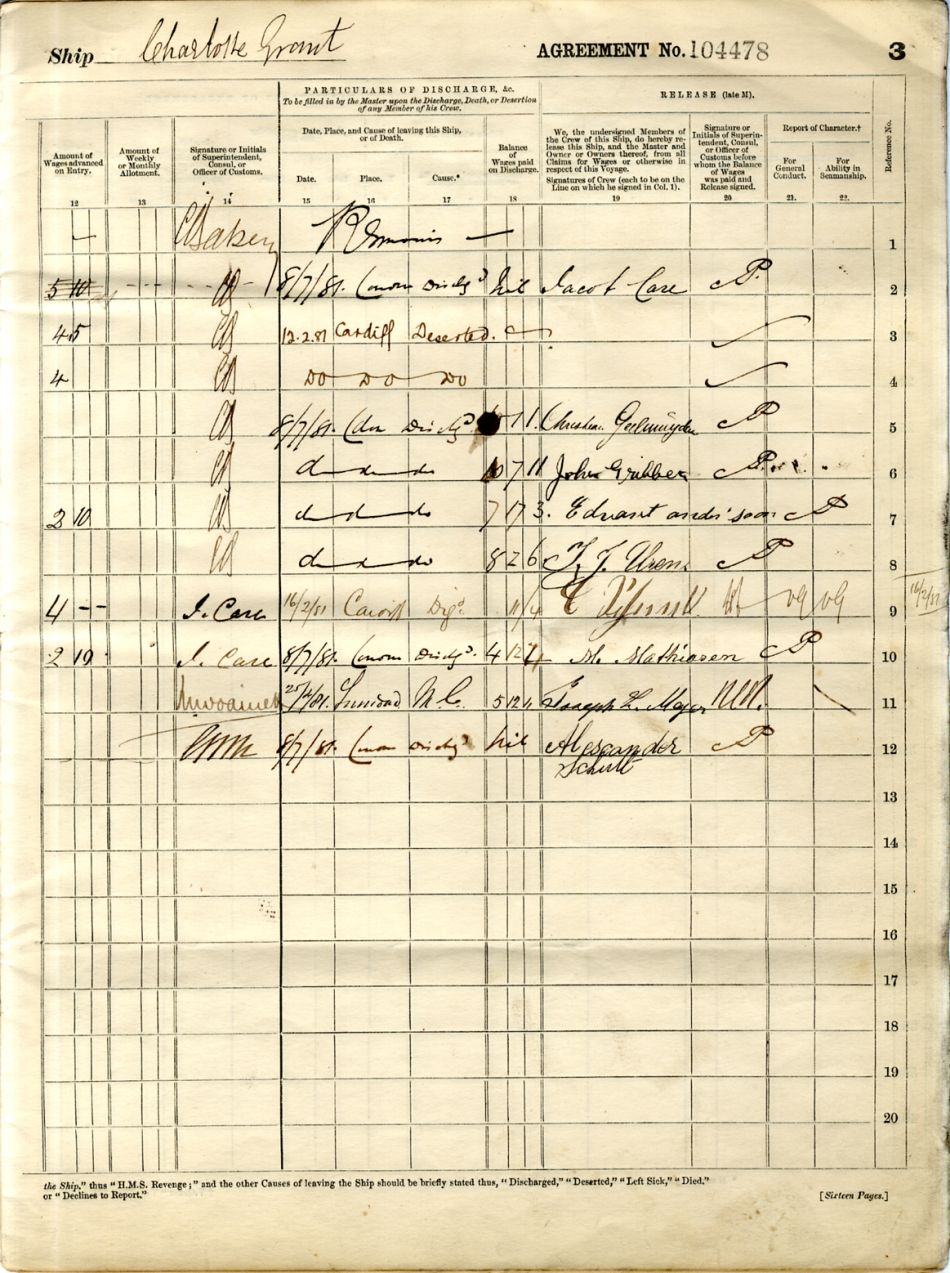 Ship Charlotte Grant AGREEMENT No. 104478 3
PARTICULARS OF DISCHARGE, &c.
To be filled in by the Master upon the Discharge, Death, or Desertion
of any Member of his Crew.
RELEASE (late M).
Amount of
Wages advanced
on Entry.
Amount of
Weekly
or Monthly
Allotment.
Signature or Initials
of Superintendent,
Consul, or
Officer of Customs.
Date, Place, and Cause of leaving this Ship,
or of Death.
Date. Place. Cause.*
Balance
of
Wages paid
on Discharge.
We, the undersigned Members of
the Crew of this Ship, do hereby re-
lease this Ship, and the Master and
Owner or Owners thereof, from all
Claims for Wages or otherwise in
respect of this Voyage.
Signatures of Crew (each to be on the
Line on which he signed in Col. 1).
Signature or
Initials of Superin-
tendent, Consul,
or Officer of
Customs before
whom the Balance
of Wages
was paid and
Release signed.
Report of Character.†
For
General
Conduct.
For
Ability in
Seamanship.
Reference No.
12 13 14 15 16 17 18 19 20 21 22.
Remains 1
5 10 8/7/81. London Dischgd nil Jacob Care P. 2
4 5 12.2.81 Cardiff Deserted. 3
4 Do Do Do 4
8/7/81. Dischgd 11. P 5
do do do 10 7 11 John Gribber P. 6
2 10 do do do 7 17 3. P 7
do do do 8 2 6 P 8
4 -- J. Care 16/2/81 Cardiff Digd 11/4 VG VG 9 16/2/81
2 10 J. Care 8/7/81. London Dischgd. 4 12 M. Mathiasen P 10
Trinidad M.C. 5 12 Joseph L. Meyer 11
8/7/81. London Dischgd nil Alexander P 12
Schutt
13
14
15
16
17
18
19
20
the Ship," thus "H.M.S. Revenge;" and the other Causes of leaving the Ship should be briefly stated thus, "Discharged," "Deserted," "Left Sick," "Died."
or "Declines to Report."
[Sixteen Pages.]